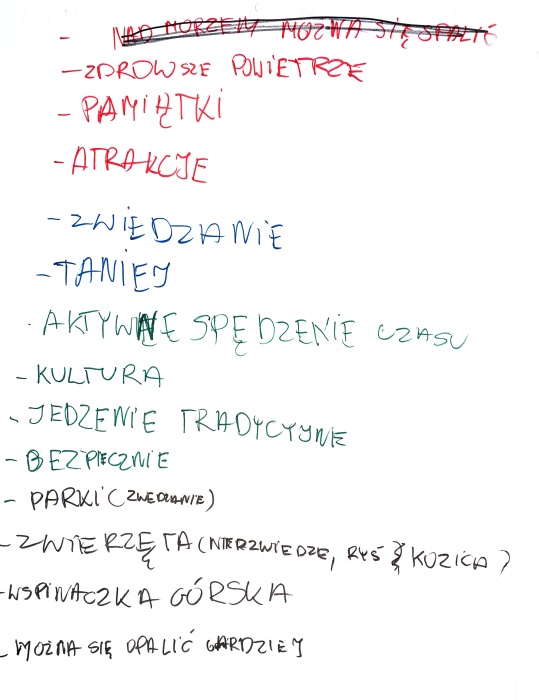 - NAD MORZEM MOŻNA SIĘ SPALIĆ
- ZDROWSZE POWIETRZE
- PAMIĄTKI
- ATRAKCJE
- ZWIEDZANIE
- TANIEJ
- AKTYWNE SPĘDZENIE CZASU
- KULTURA
- JEDZENIE TRADYCYJNE
- BEZPIECZNIE
- PARKI (ZWIEDZANIE)
- ZWIERZĘTA (NIERZWIEDZE, RYŚ KOZICA)
- WSPINACZKA GÓRSKA
- MOŻNA SIĘ OPALIĆ BARDZIEJ